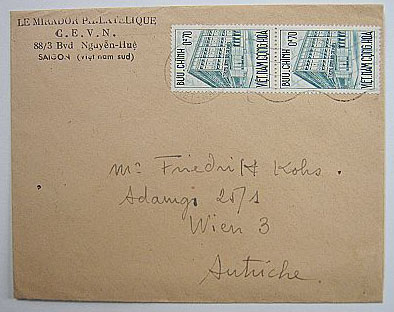 LE MIRADOR PHILATELIQUE
C.E.V.N.
88/3 Bvd Nguyễn-Huệ
SAIGON (việt nam sud)
BƯU-CHÍNH 0đ70
VIỆT NAM CỘNG HÒA
BƯU-CHÍNH 0đ70
VIỆT NAM CỘNG HÒA
Mr Friedrich Kohs
25/1
Wien 3
Autriche.